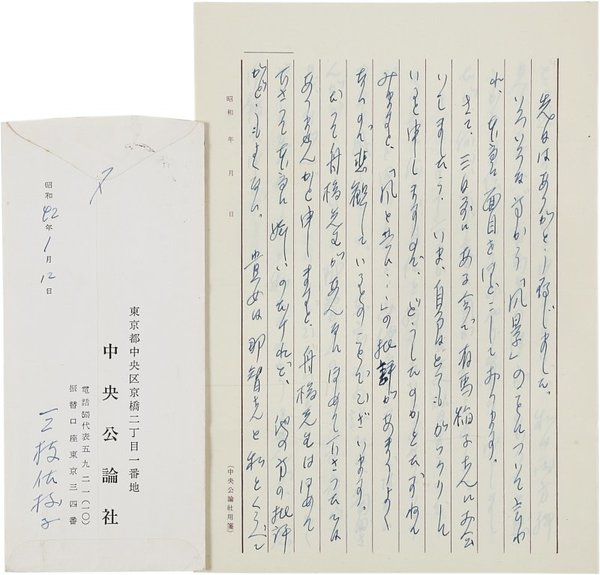 先日はありがとう存じました。
いろいろな方から「風景」のことについて言わ
れ、本当に面目をほどこしております。
さて、三日前にある会で有馬稲子さんにお会
いしましたら、いま、自分はとてもがっかりして
いると申しますので、どうしたのかとたずねて
みますと、「風と共に…」の批評があまりよく
ないので悲観しているとのことでございます。
だって舟橋先生があんなにほめて下さったでは
ありませんかと申しますと、舟橋先生はほめて
下さって本当に嬉しいのだけれど、他の方の批評
がどうもよくない。貴女は那智さんと私とくらべて
昭和 年 月 日
(中央公論社用箋)
昭和42年1月12日
東京都中央区京橋二丁目一番地
中央公論社
電話代表五九二一(一〇)
振替口座東京三四番
三枝佐枝子